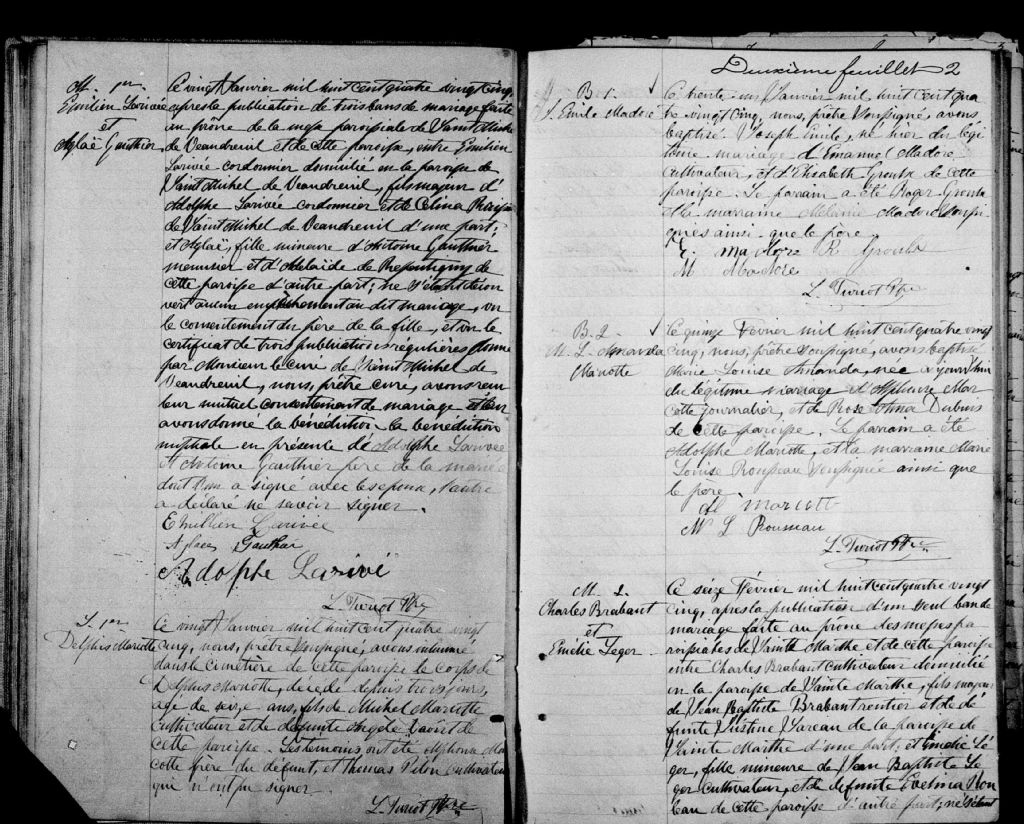 M. 1er.
Emilien Larivée
et
Aglaë Gauthier
Le vingt Janvier mil huit cent quatre vingt cinq,
apres la publication de trois bans de mariage faite
au prône de la messe paroissiale de Saint Michel
de Vaudreuil et de cette paroisse, entre Emilien
Larivée cordonnier domicilié en la paroisse de
Saint Michel de Vaudreuil, fils majeur d'
Adolphe Larivée cordonnier et de Celina
de Saint Michel de Vaudreuil d'une part;
et Aglaë, fille mineure d'Antoine Gauthier
meunier et d'Adelaïde de Repentigny de
cette paroisse d'autre part; ne s'étant découvert
aucun empêchement au dit mariage, vu
le consentement du père de la fille, et vu le
certificat de trois publications régulières donné
par Monsieur le curé de Saint Michel de
Vaudreuil, nous, prêtre curé, avons reçu
leur mutuel consentement de mariage et leur
avons donné la bénédiction la bénédiction
nuptiale en présence de Adolphe Larivée
et Antoine Gauthier père de la mariée
dont l'un a signé avec les epoux, l'autre
a déclaré ne savoir signer.
Emillien Larivée
Aglaee Gauthier
Adolphe Larivé
L. Turcot Ptre
S. 1er
Delphis Mariotte
Le vingt Janvier mil huit cent quatre vingt
cinq, nous, prêtre soussigné, avons inhumé
dans le cimetière de cette paroisse le corps de
Delphis Mariotte, décédé depuis trois jours,
agé de seize ans, fils de Michel Mariotte
cultivateur et de défunte Angèle
cette paroisse. Les temoins ont été Alphonse Ma
cotte frère du défunt, et Thomas Pilon cultivateur
qui n'ont pu signer.
L. Turcot Ptre
Deuxième feuillet 2
B 1.
J. Emile Madore
Le trente-un Janvier mil huit cent qua
tre vingt cinq, nous, prêtre soussigné, avons
baptisé Joseph Emile, né hier du légi
time mariage d'Emanuel Madore
cultivateur, et d'Elisabeth Groulx de cette
paroisse. Le parrain a été Roger Groulx
et la marraine Mélanie Madore soussi
gnés ainsi que le père.
E. Madore R Groulx
M Madore
L. Turcot Ptre
B. 2
M. L. Amanda
Mariotte
Le quinze Février mil huit cent quatre vingt
cinq, nous, prêtre soussigné, avons baptisé
Marie Louise Amanda, née aujourd'hui
du légitime mariage d'Alphonse Mar
cotte journalier, et de Rose Anna Dubois
de cette paroisse. Le parrain a été
Adolphe Mariotte, et la marraine Marie
Louise Rousseau soussignée ainsi que
le père.
al marcott
M L Rousseau
L. Turcot Ptre
M. 2.
Charles Brabant
et
Emélie Leger
Le seize Février mil huit cent quatre vingt
cinq, apres la publication d'un seul ban de
mariage faite au prône des messes pa
roissiales de Sainte Marthe et de cette paroisse
entre Charles Brabant cultivateur domicilié
en la paroisse de Sainte Marthe, fils majeur
de Jean Baptiste Brabant rentier et de dé
funte Justine Sareau de la paroisse de
Sainte Marthe d'une part, et Emélie Lé
ger, fille mineure de Jean Baptiste Le
ger cultivateur, et de défunte Evelina
de cette paroisse d'autre part; ne s'étant